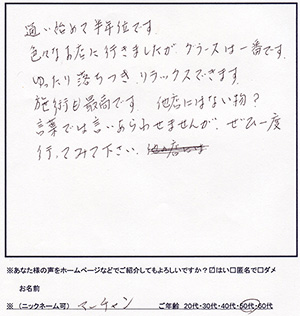 通い始めて半年位です。
色々なお店に行きましたが グラースは一番です。
ゆったり落ちつき リラックスできます。
施術も最高です 他店にはない物？
言葉では言いあらわせませんが、ぜひ一度
行ってみて下さい。
※あなた様の声をホームページなどでご紹介してもよろしいですか？☑はい□匿名で□ダメ
お名前
※（ニックネーム可） マーチャン ご年齢 20代・30代・40代・50代・60代